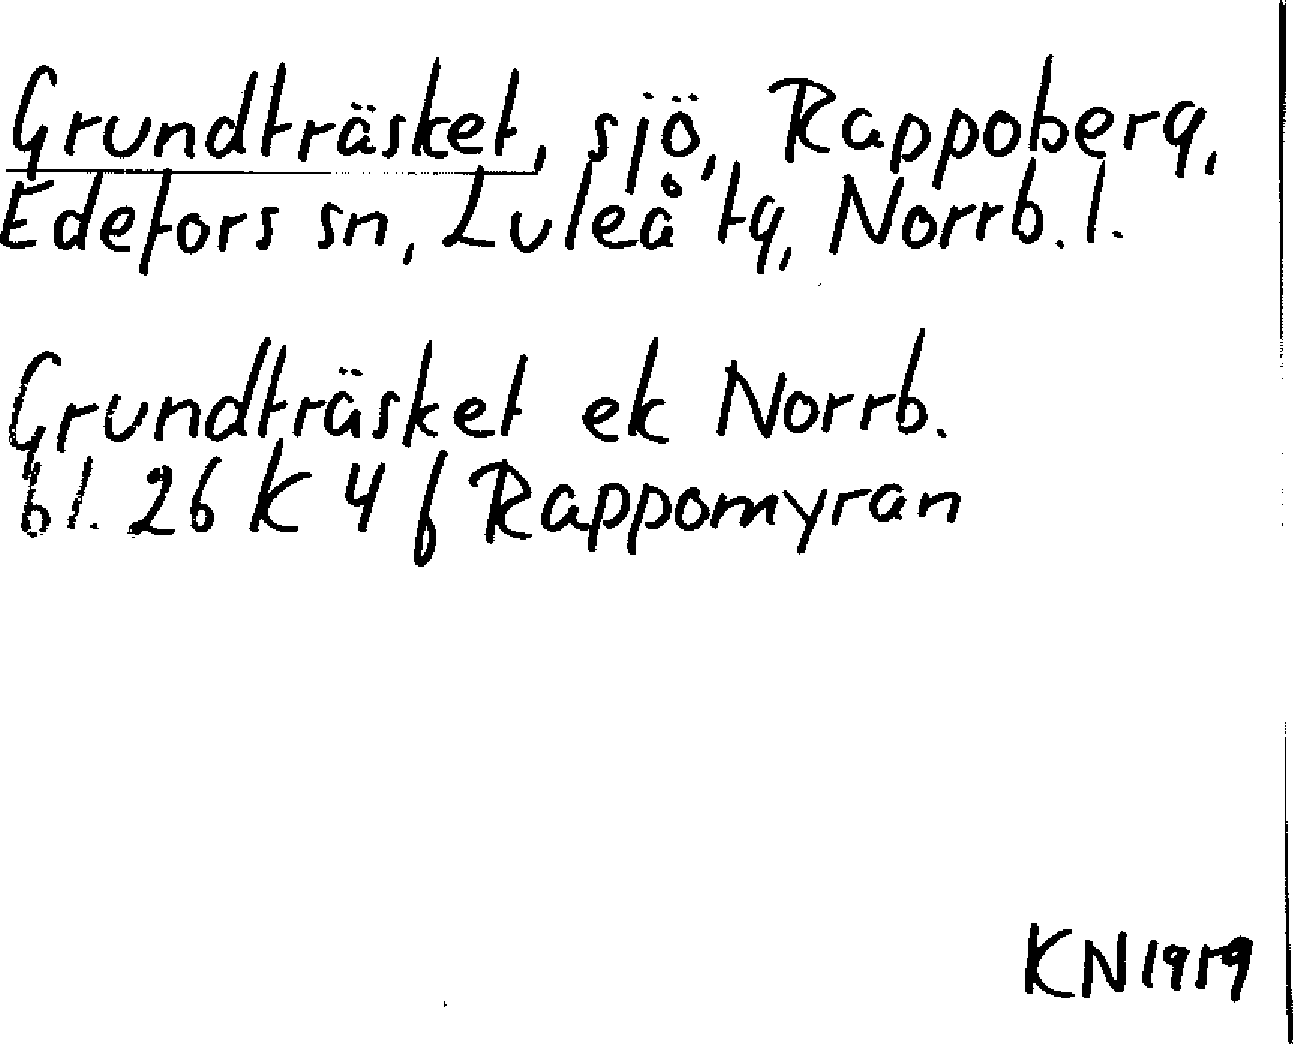 Grundträsket, sjö, Rappoberg,
Edefors sn, Luleå tg, Norrb. l.
Grundträsket ek Norrb.
bl. 26 K 4 f Rappomyran
KN 1959